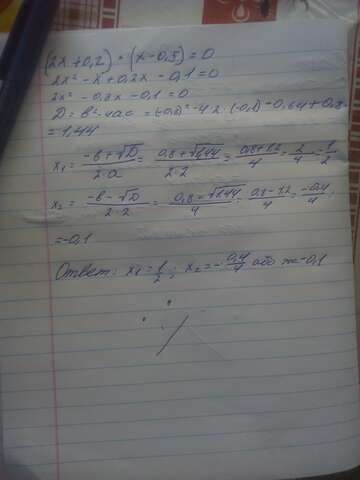 (2x+0,2) · (x-0,5) = 0
2x² - x + 0,2x - 0,1 = 0
2x² - 0,8x - 0,1 = 0
D = b² - 4ac = (-0,8)² - 4·2·(-0,1) = 0,64 + 0,8
= 1,44
x₁ = (-b+√D)/(2·a) = (0,8+√1,44)/(2·2) = (0,8+1,2)/4 = 2/4 = 1/2
x₂ = (-b-√D)/(2·2) = (0,8-√1,44)/4 = (0,8-1,2)/4 = (-0,4)/4
= -0,1
Ответ: x₁ = 1/2 ; x₂ = -0,4/4 або -0,1